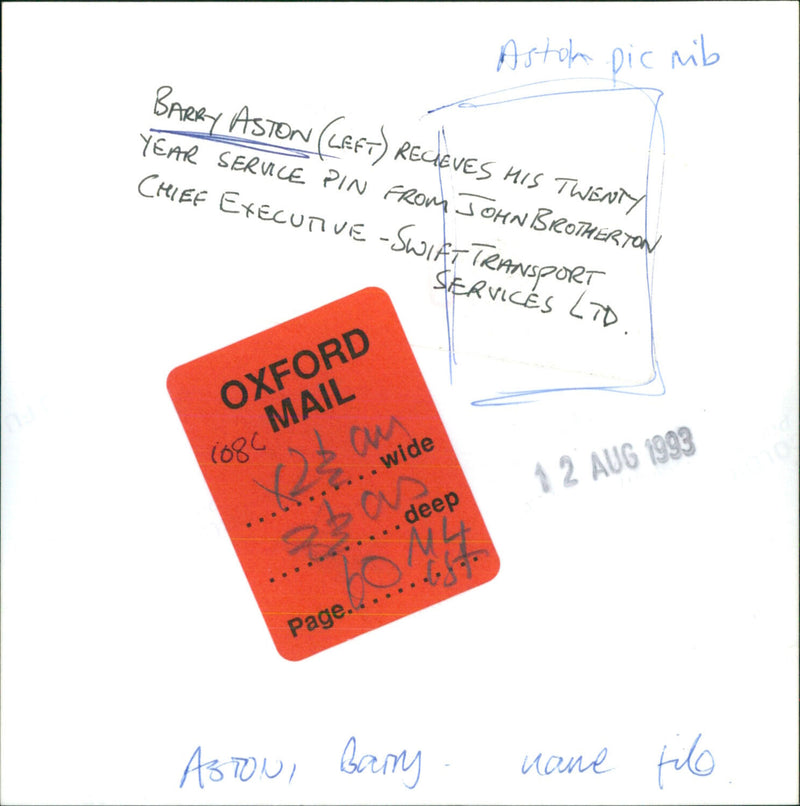 Aston pic nib
BARRY ASTON (LEFT) RECIEVES HIS TWENTY
YEAR SERVICE PIN FROM JOHN BROTHERTON
CHIEF EXECUTIVE - SWIFT TRANSPORT
SERVICES LTD.
OXFORD
MAIL
108C
x2½ cms
..........wide
cms
..........deep
Page.......... 60
1st
12 AUG 1993
ASTON, Barry - name file